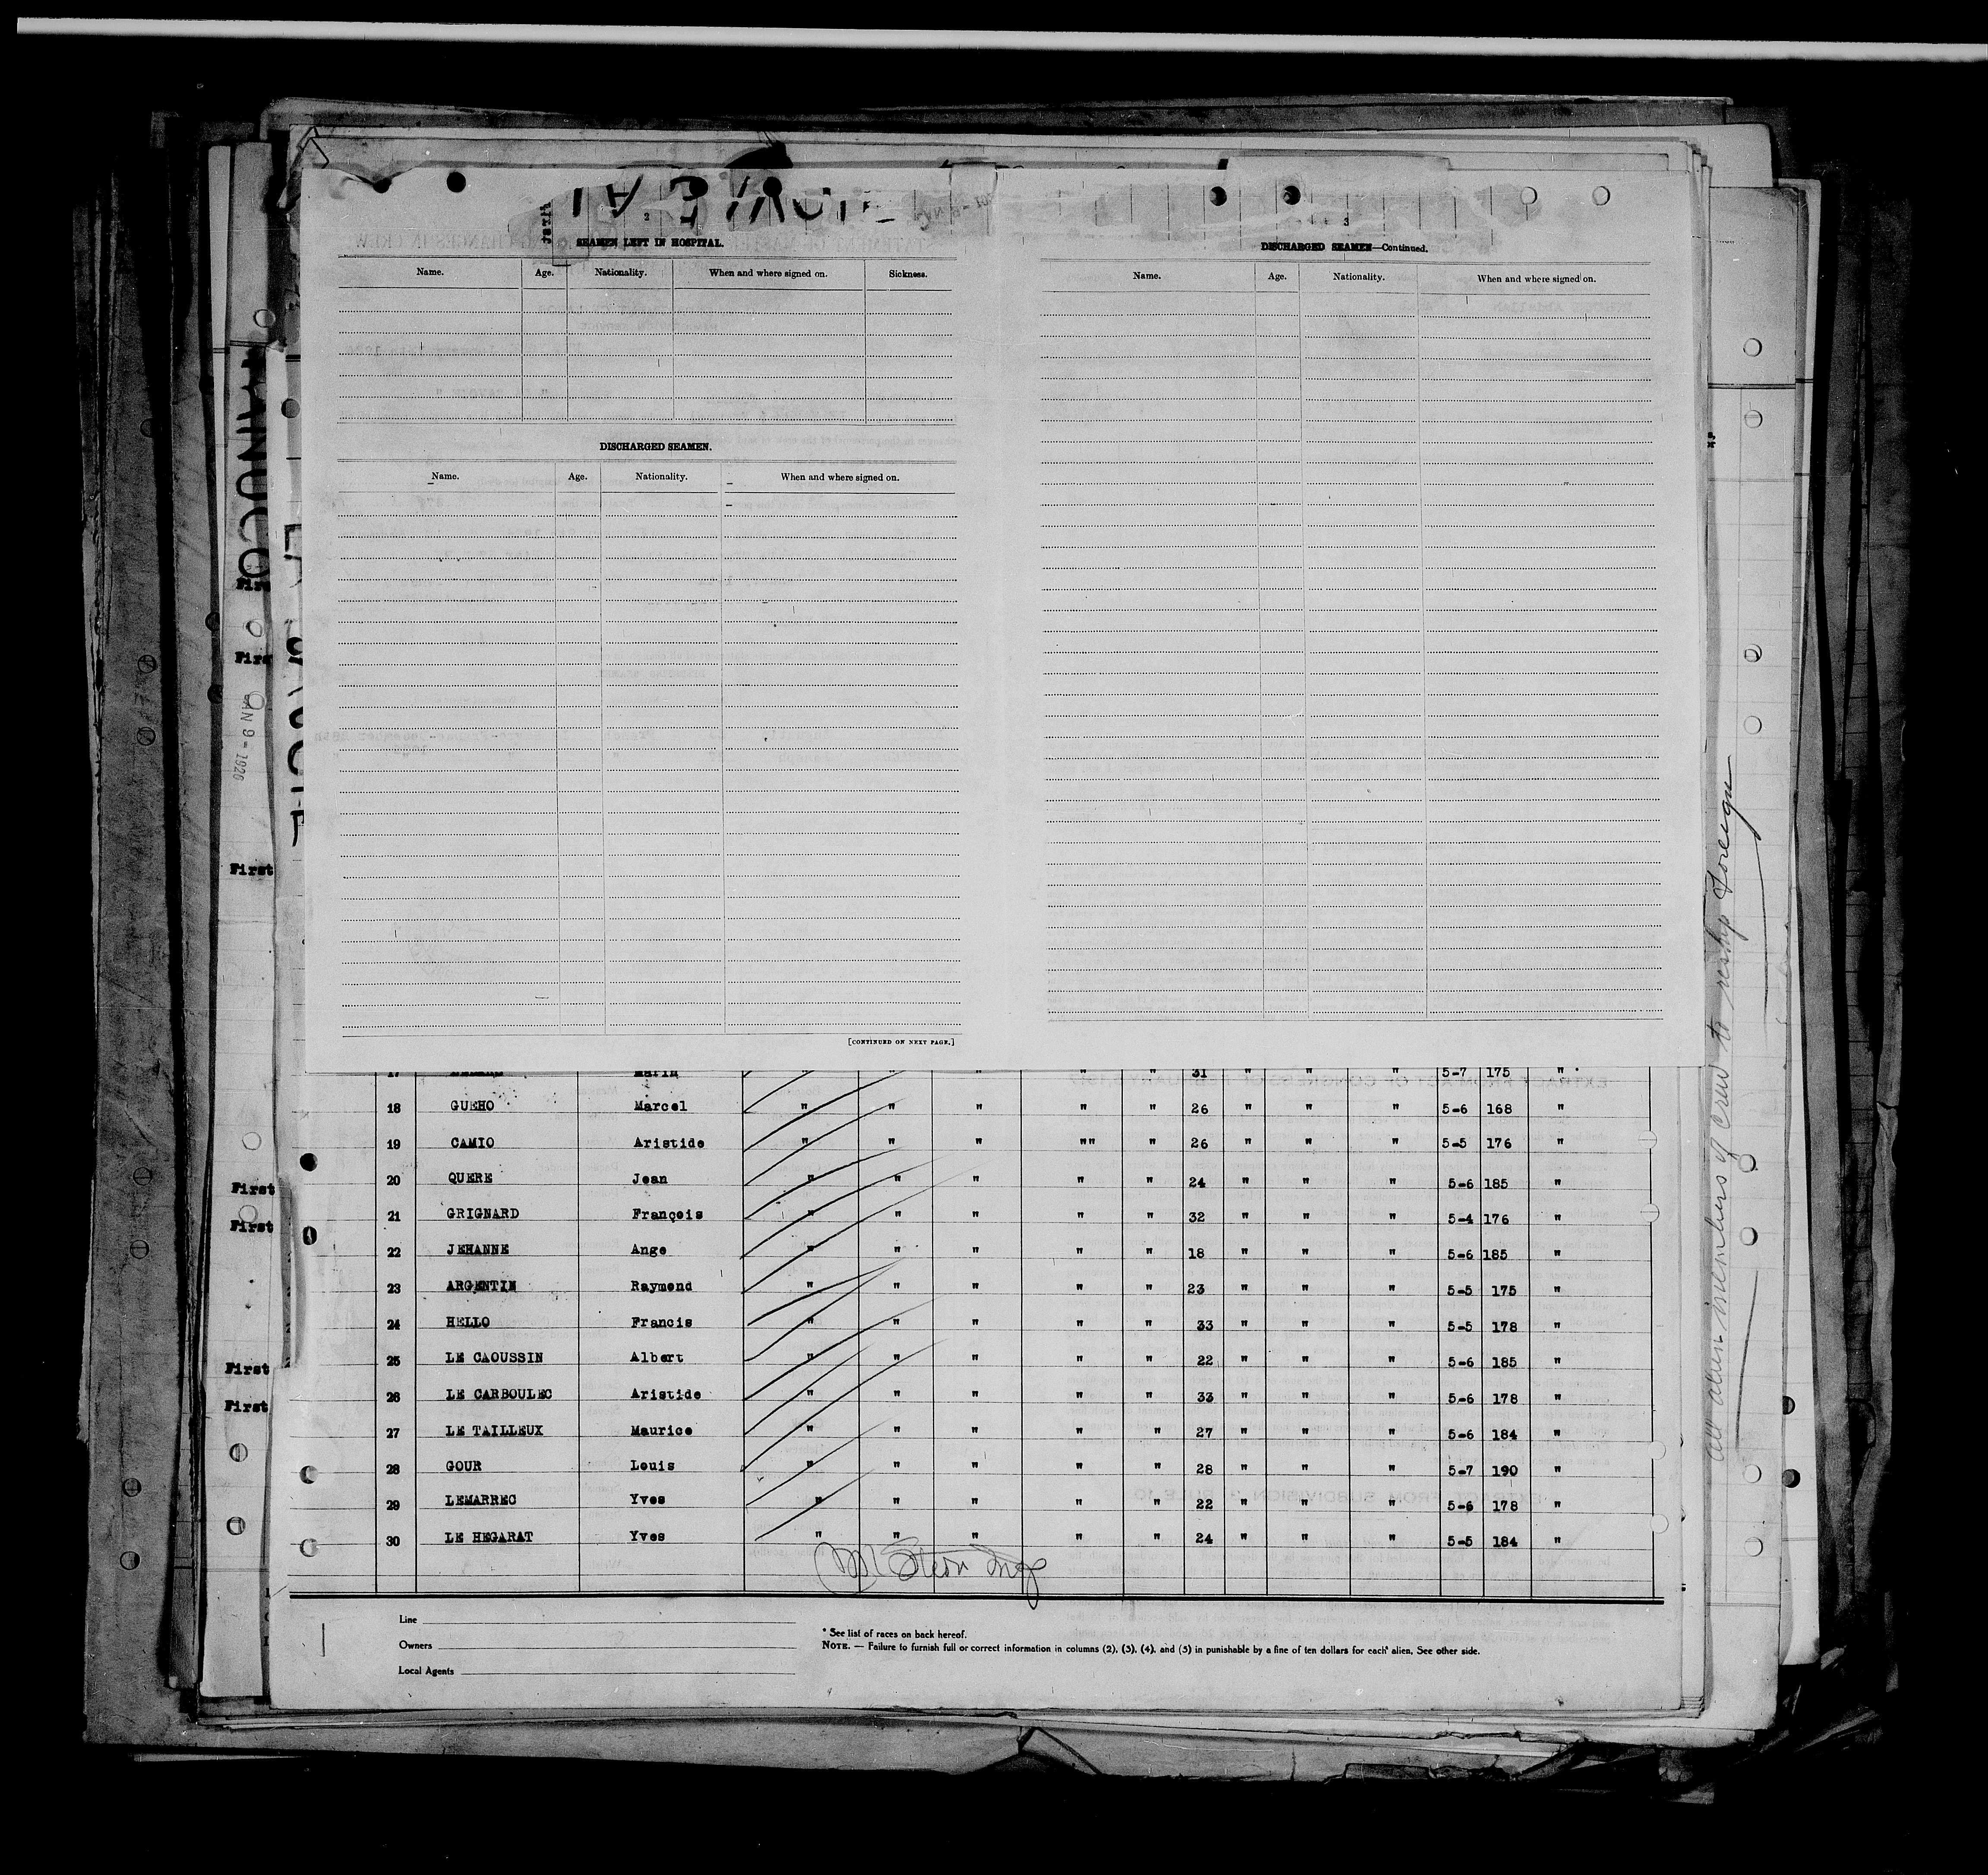 2
SEAMEN LEFT IN HOSPITAL.
Name. Age. Nationality. When and where signed on. Sickness.
DISCHARGED SEAMEN.
Name. Age. Nationality. When and where signed on.
[CONTINUED ON NEXT PAGE.]
3
DISCHARGED SEAMEN—Continued.
Name. Age. Nationality. When and where signed on.
17 Marin " " " " " 31 " " " 5-7 175 "
18 GUEHO Marcel " " " " " 26 " " " 5-6 168 "
19 CAMIO Aristide " " " "" " 26 " " " 5-5 176 "
20 QUERE Jean " " " " " 24 " " " 5-6 185 "
21 GRIGNARD François " " " " " 32 " " " 5-4 176 "
22 JEHANNE Ange " " " " " 18 " " " 5-6 185 "
23 ARGENTIN Raymond " " " " " 23 " " " 5-5 175 "
24 HELLO Francis " " " " " 33 " " " 5-5 178 "
25 LE CAOUSSIN Albert " " " " " 22 " " " 5-6 185 "
26 LE CARBOULEC Aristide " " " " " 33 " " " 5-6 178 "
27 LE TAILLEUX Maurice " " " " " 27 " " " 5-6 184 "
28 GOUR Louis " " " " " 28 " " " 5-7 190 "
29 LEMARREC Yves " " " " " 22 " " " 5-6 178 "
30 LE HEGARAT Yves " " " " " 24 " " " 5-5 184 "
Line
Owners
Local Agents
* See list of races on back hereof.
NOTE. — Failure to furnish full or correct information in columns (2), (3), (4), and (5) in punishable by a fine of ten dollars for each alien. See other side.
First
First
JAN 9 - 1920
First
First
First
First
First
all alien members of crew to reship foreign